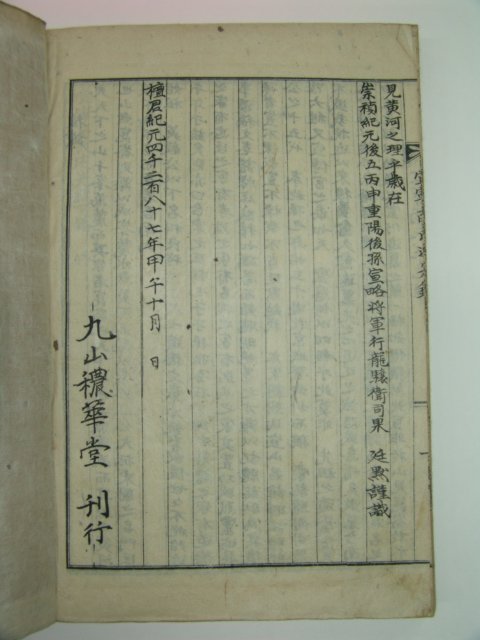 見黃河之理乎歲在
崇禎紀元後五丙申重陽後孫宣略將軍行龍驤衛司果 廷默謹識
檀君紀元四千二百八十七年甲午十月 日
九山穠華堂 刊行